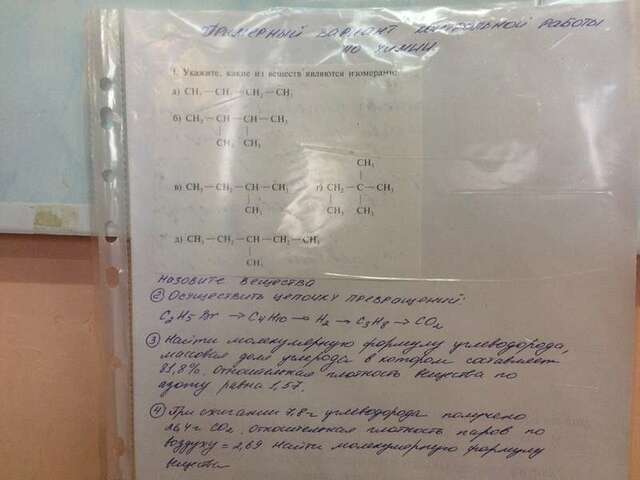 Примерный вариант контрольной работы
по химии
1. Укажите, какие из веществ являются изомерами:
а) CH₃—CH₂—CH₂—CH₃
б) CH₃—CH—CH—CH₃
CH₃ CH₃
CH₃
в) CH₃—CH₂—CH—CH₃ г) CH₂—C—CH₃
CH₃ CH₃ CH₃
д) CH₃—CH₂—CH—CH₂—CH₃
CH₃
Назовите вещества
② Осуществить цепочку превращений:
C₂H₅Br → C₄H₁₀ → H₂ → C₃H₈ → CO₂
③ Найти молекулярную формулу углеводорода,
массовая доля углерода в котором составляет
81,8%. Относительная плотность вещества по
азоту равна 1,57.
④ При сжигании 7,8г углеводорода получено
26,4г CO₂. Относительная плотность паров по
воздуху = 2,69 Найти молекулярную формулу
вещества